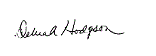 Debra A Hodgson